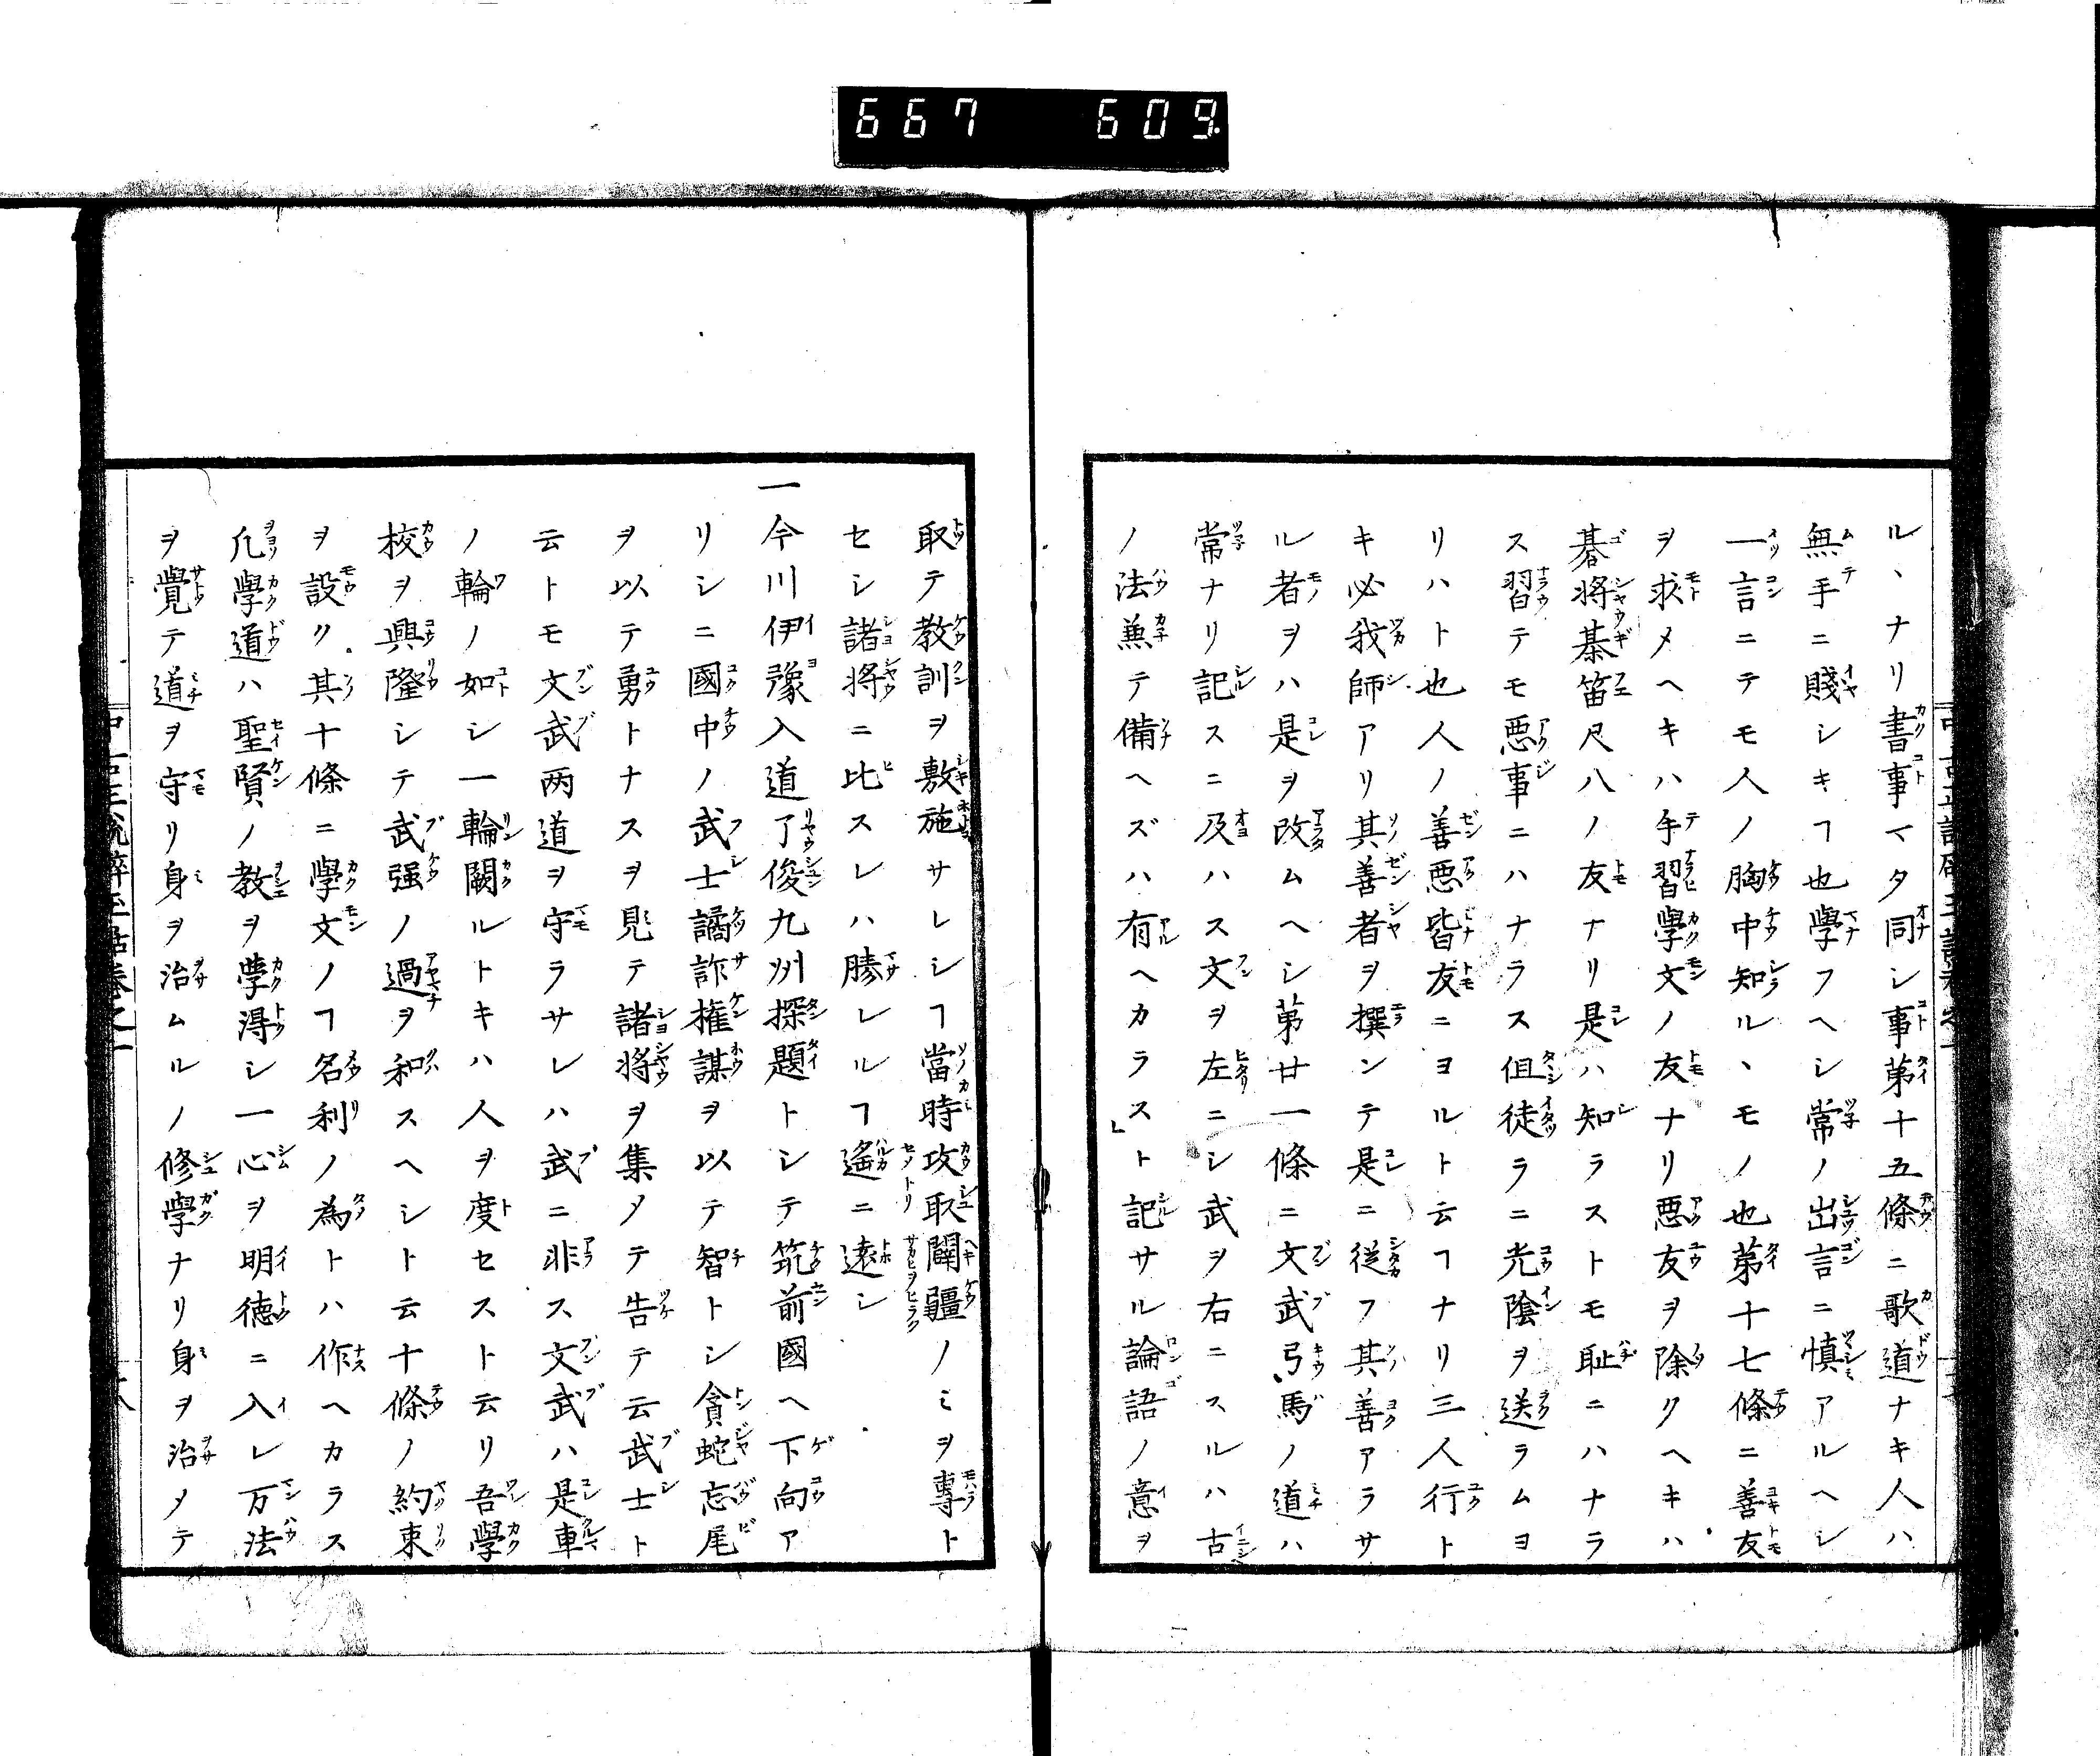 667 609
ルヽナリ書事マタ同シ事第十五條ニ歌道ナキ人ハ
無手ニ賤シキヿ也學フヘシ常ノ出言ニ慎アルヘシ
一言ニテモ人ノ胸中知ルヽモノ也第十七條ニ善友
ヲ求メヘキハ手習學文ノ友ナリ悪友ヲ除クヘキハ
碁將棊笛尺八ノ友ナリ是ハ知ラストモ耻ニハナラ
ス習テモ悪事ニハナラス但徒ラニ光陰ヲ送ラムヨ
リハト也人ノ善悪皆友ニヨルト云ヿナリ三人行ト
キ必我師アリ其善者ヲ撰ンテ是ニ従フ其善アラサ
ル者ヲハ是ヲ改ムヘシ第廿一條ニ文武弓馬ノ道ハ
常ナリ記スニ及ハス文ヲ左ニシ武ヲ右ニスルハ古
ノ法兼テ備ヘズハ有ヘカラス」ト記サル論語ノ意ヲ
取テ教訓ヲ敷施サレシヿ當時攻取闢疆ノミヲ專ト
セシ諸將ニ比スレハ勝レルヿ遙ニ遠シ
一今川伊豫入道了俊九州探題トシテ筑前國ヘ下向ア
リシニ國中ノ武士譎詐權謀ヲ以テ智トシ貪蛇忘尾
ヲ以テ勇トナスヲ見テ諸將ヲ集メテ告テ云武士ト
云トモ文武両道ヲ守ラサレハ武ニ非ス文武ハ是車
ノ輪ノ如シ一輪闕ルトキハ人ヲ度セスト云リ吾學
校ヲ興隆シテ武强ノ過ヲ和スヘシト云十條ノ約束
ヲ設ク其十條ニ學文ノヿ名利ノ為トハ作ヘカラス
凡學道ハ聖賢ノ教ヲ學得シ一心ヲ明徳ニ入レ万法
ヲ覺テ道ヲ守リ身ヲ治ムルノ修學ナリ身ヲ治メテ